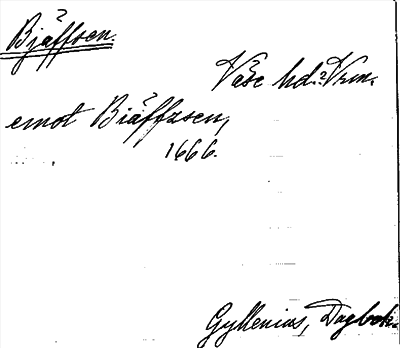 Bjäffsen.
Väse hd. Vrm.
emot Biäffzsen,
1666.
Gyllenius, Dagbok.